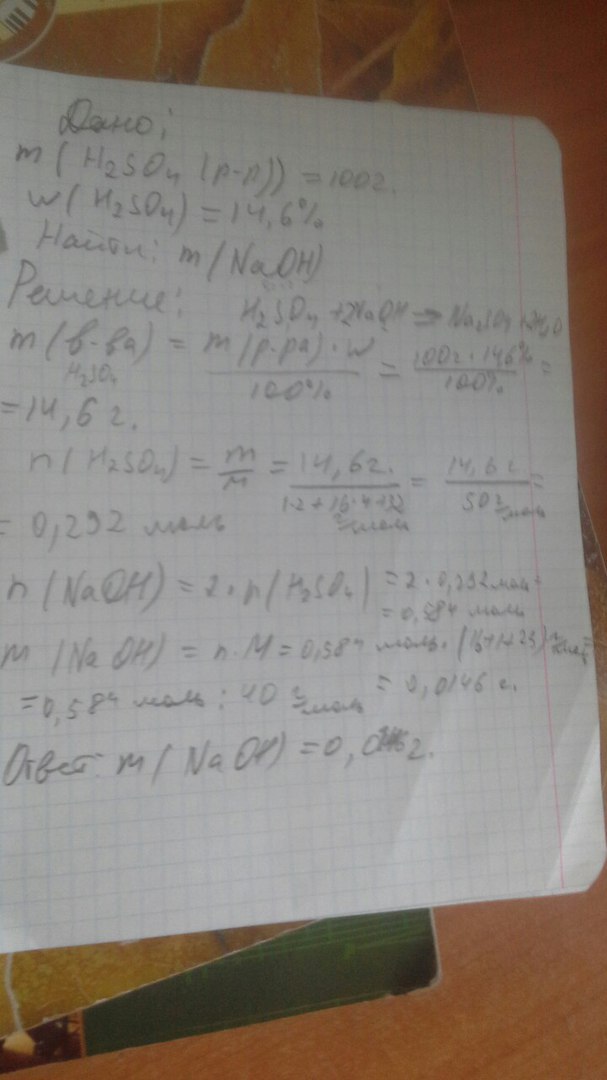 Дано:
m(H₂SO₄ (р-р)) = 100г.
w(H₂SO₄) = 14,6%
Найти: m(NaOH)
Решение: H₂SO₄ + 2NaOH = Na₂SO₄ + 2H₂O
m(в-ва) H₂SO₄ = m(р-ра)·w / 100% = 100г·14,6% / 100% =
= 14,6 г.
n(H₂SO₄) = m/M = 14,6г. / 1·2+16·4+32 г/моль = 14,6 г / 50 г/моль =
= 0,292 моль
n(NaOH) = 2·n(H₂SO₄) = 2·0,292 моль =
= 0,584 моль
m(NaOH) = n·M = 0,584 моль·(16+1+23) г/моль =
= 0,584 моль : 40 г/моль = 0,0146 г.
Ответ: m(NaOH) = 0,0146г.